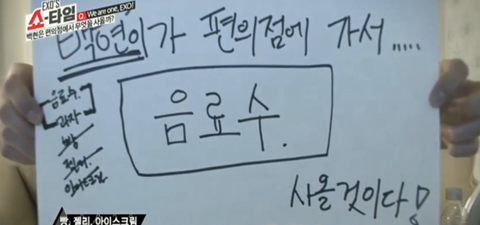 EXO'S
쇼타임
Q. We are one, EXO!
백현은 편의점에서 무엇을 사올까?
백현이가 편의점에 가서.....
음료수.
과자
빵
젤리.
아이스크림
음료수.
사올것이다!
빵, 젤리, 아이스크림